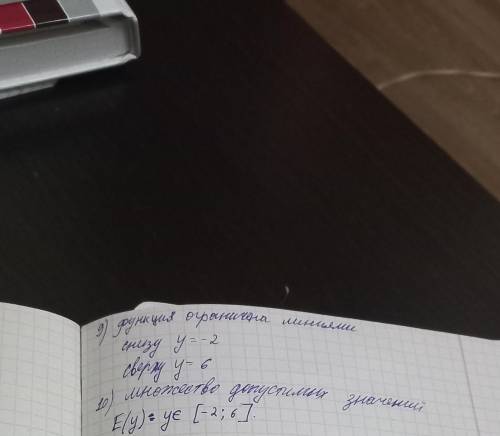 9) функция ограничена линиями
снизу y = -2
сверху y = 6
10) множество допустимых значений
E(y) = y ∈ [-2; 6].